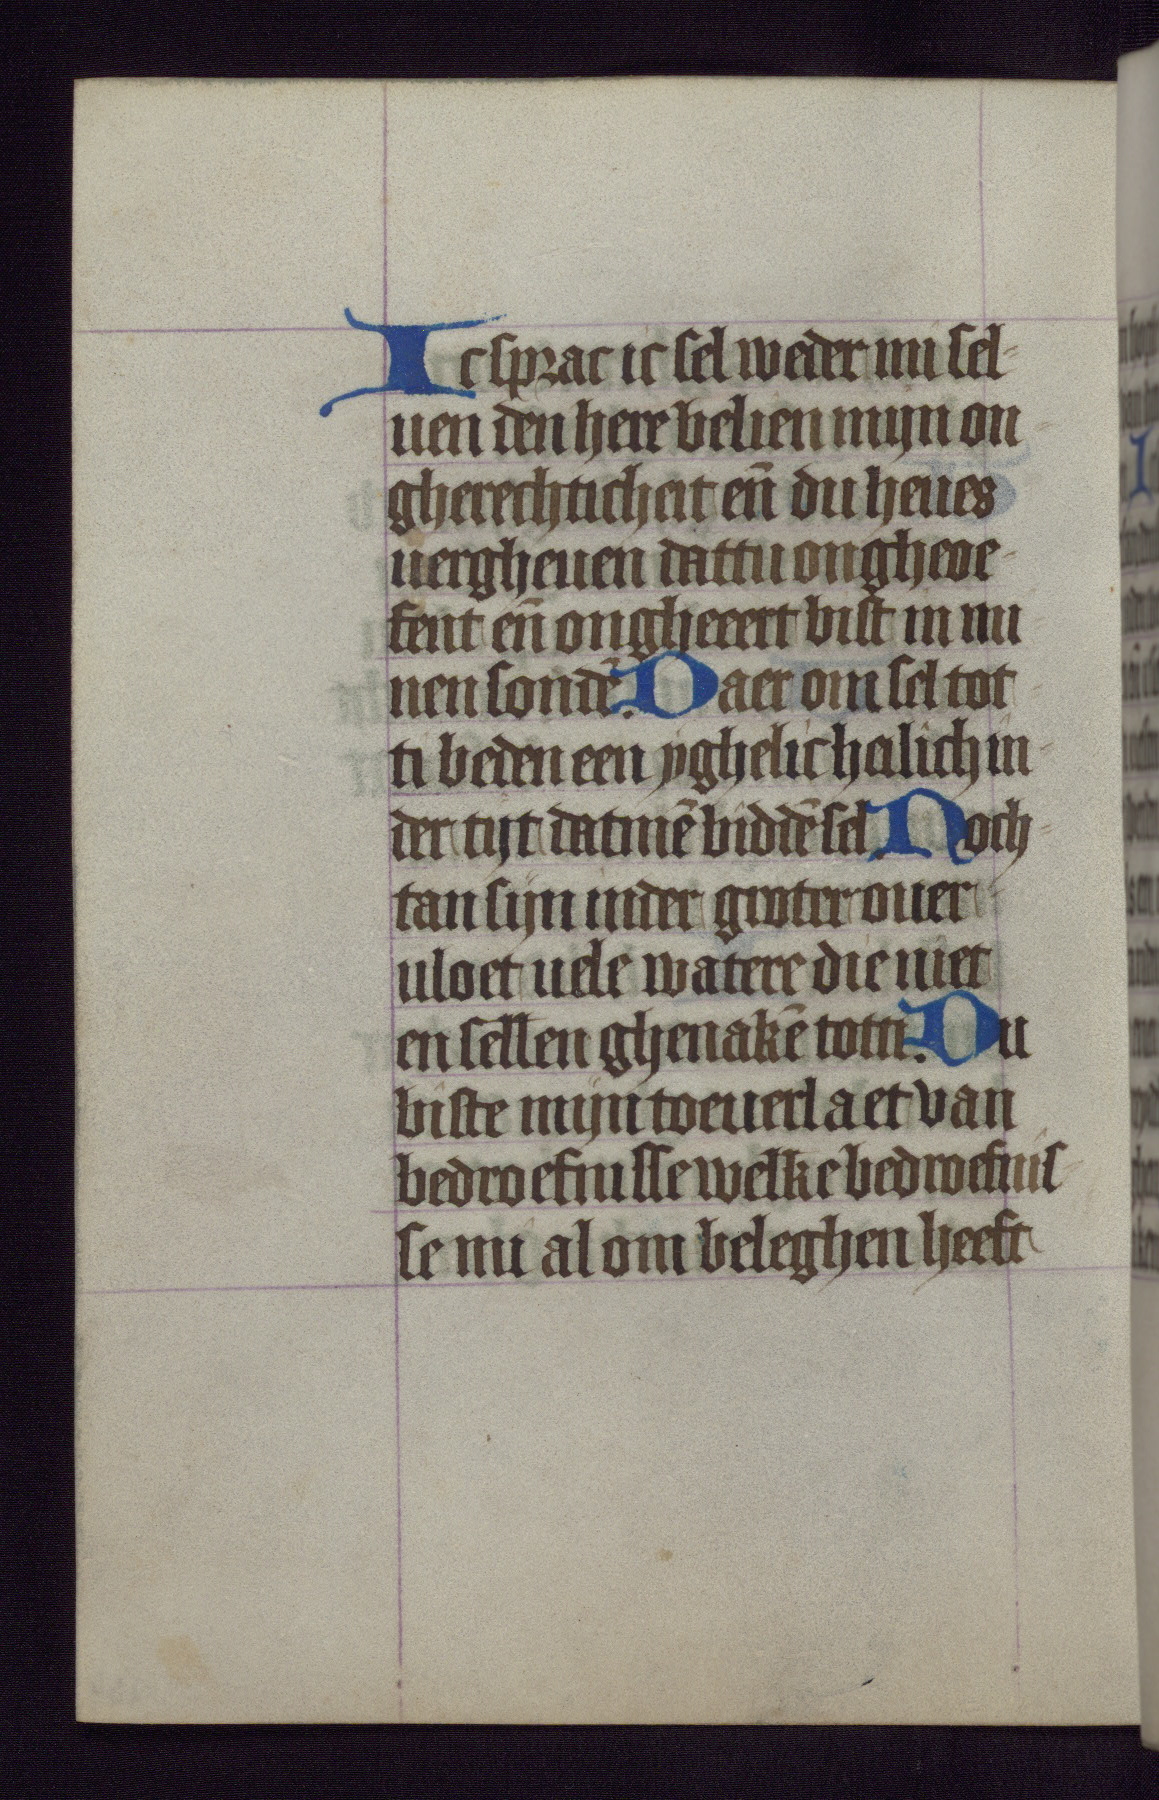 Ic sprac ic sel weder mi sel-
uen den here belien mijn on-
gherechticheit eñ du heues
uergheuen dattu onghevue-
sent eñ onghecert bist in mi
nen sondē. Daer om sel tot
ti beden een yghelic heilich in-
der tijt datmē biddē sel. Noch-
tan sijn inder groter ouer-
uloet uele watere die niet
en sellen ghenakē totti. Du
biste mijn toeuerlaet van
bedroefnisse welke bedroefnis-
se mi al om beleghen heeft